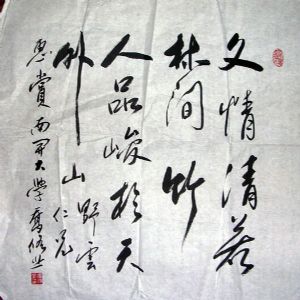 文情清若
林間竹
人品峻於天
外山
野雲
仁兄
惠賞南開大學